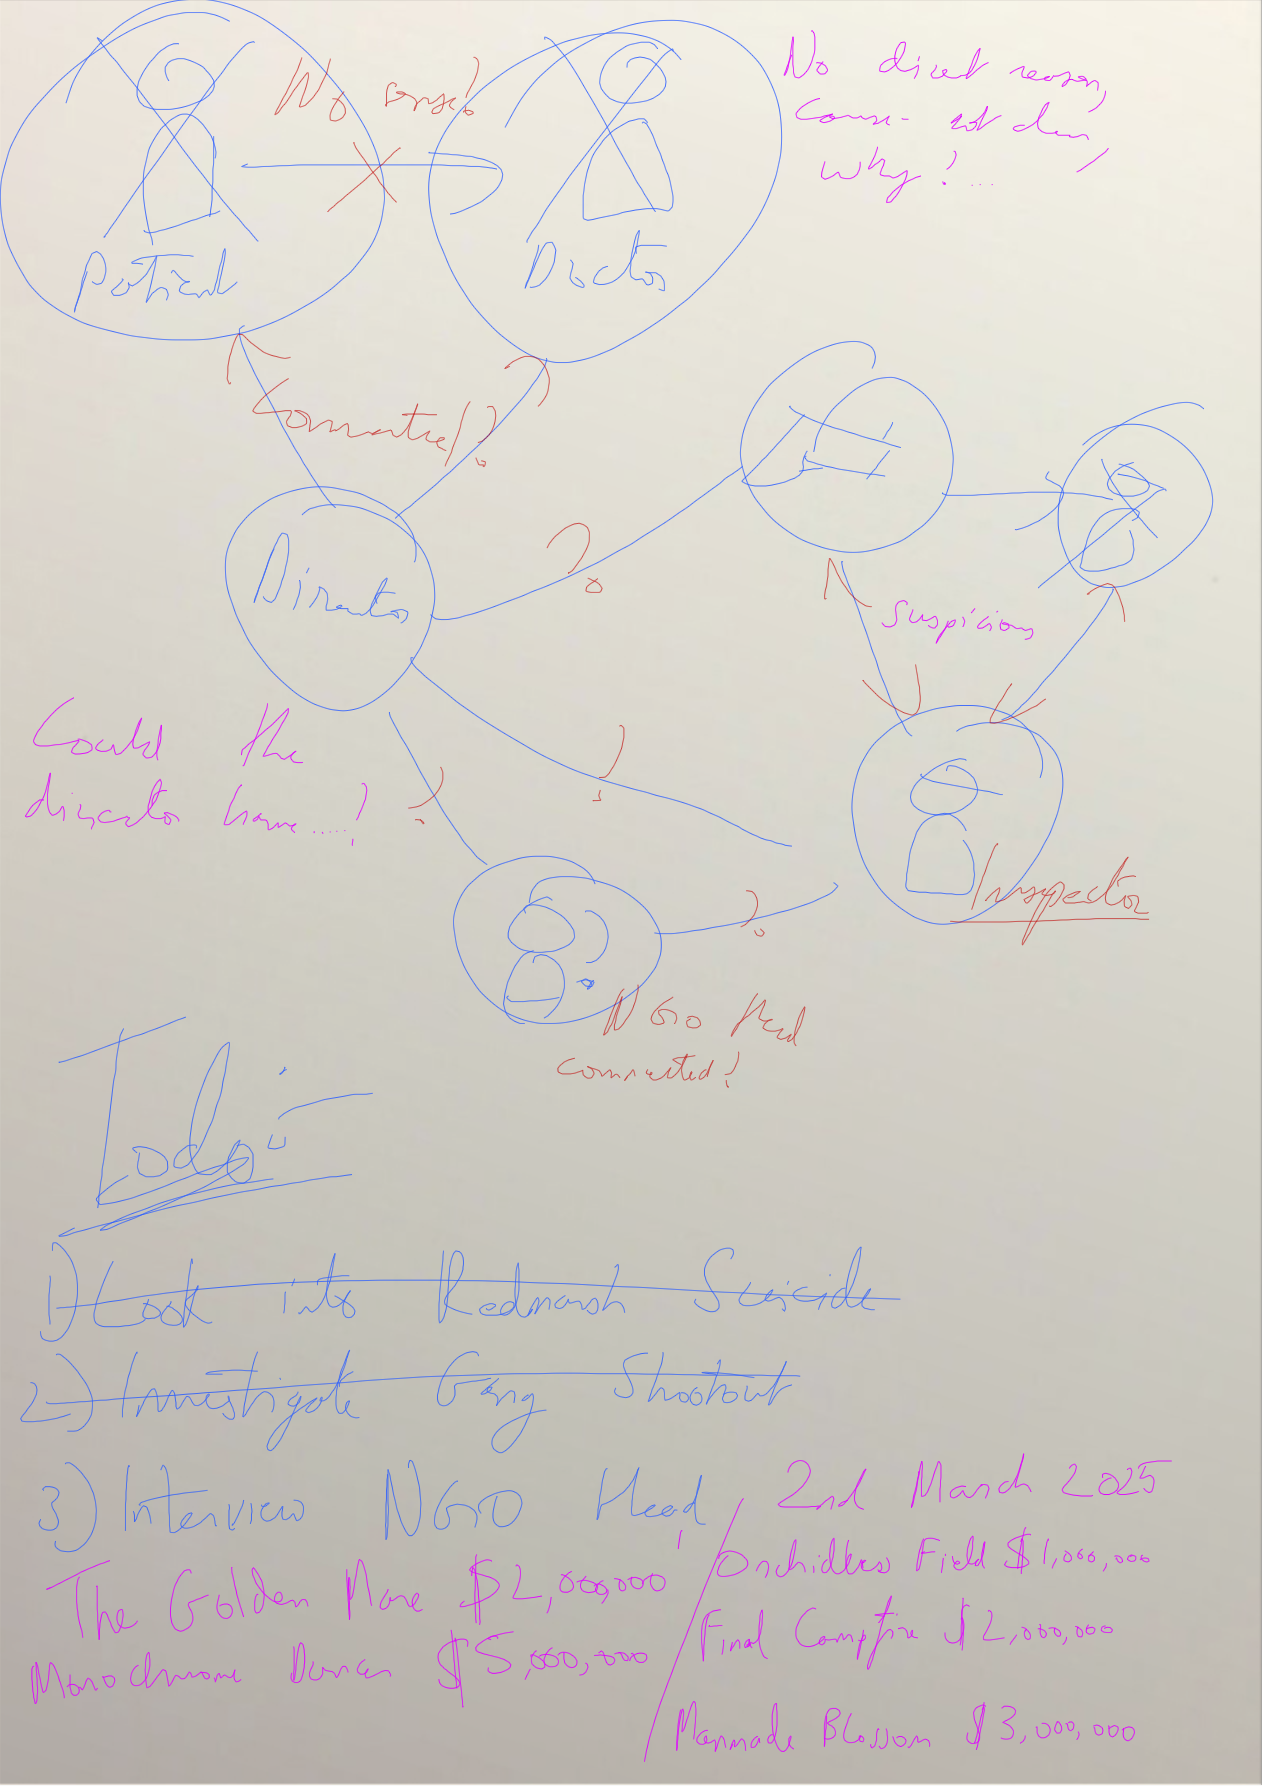 No sense?
No direct reason,
cause- not clear,
why?...
Patient
Doctor
Connected?
Director
Suspicious
Could the
director have.....?
Inspector
NGO Head
connected?
Todo:-
1) Look into Redmarsh Suicide
2) Investigate Gang Shootout
3) Interview NGO Head
2nd March 2025
The Golden Mare $2,000,000
Monochrome Dancer $5,000,000
Orchidless Field $1,000,000
Final Campfire $2,000,000
Manmade Blossom $3,000,000